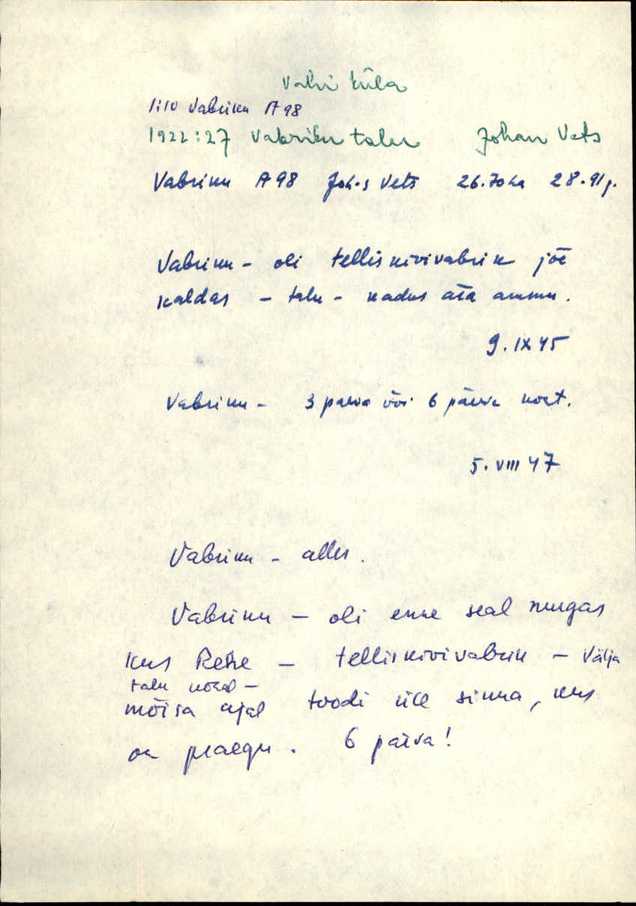 Vahi küla
1:10 Vabriku A 98
1922:27 Vabriku talu Johan Vets
Vabriku A 98 Joh-s Vets 26.70ha 28.91
Vabriku - oli telliskivivabrik jõe
kaldas - talu - kadus ära ammu.
9. IX 45
Vabriku - 3 päeva või 6 päeva koht.
5. VIII 47
Vabriku - alles.
Vabriku - oli enne seal nurgas
kus Rehe - telliskivivabrik - Välja
talu kord -
mõisa ajal toodi üle sinna, kus
on praegu. 6 päeva!